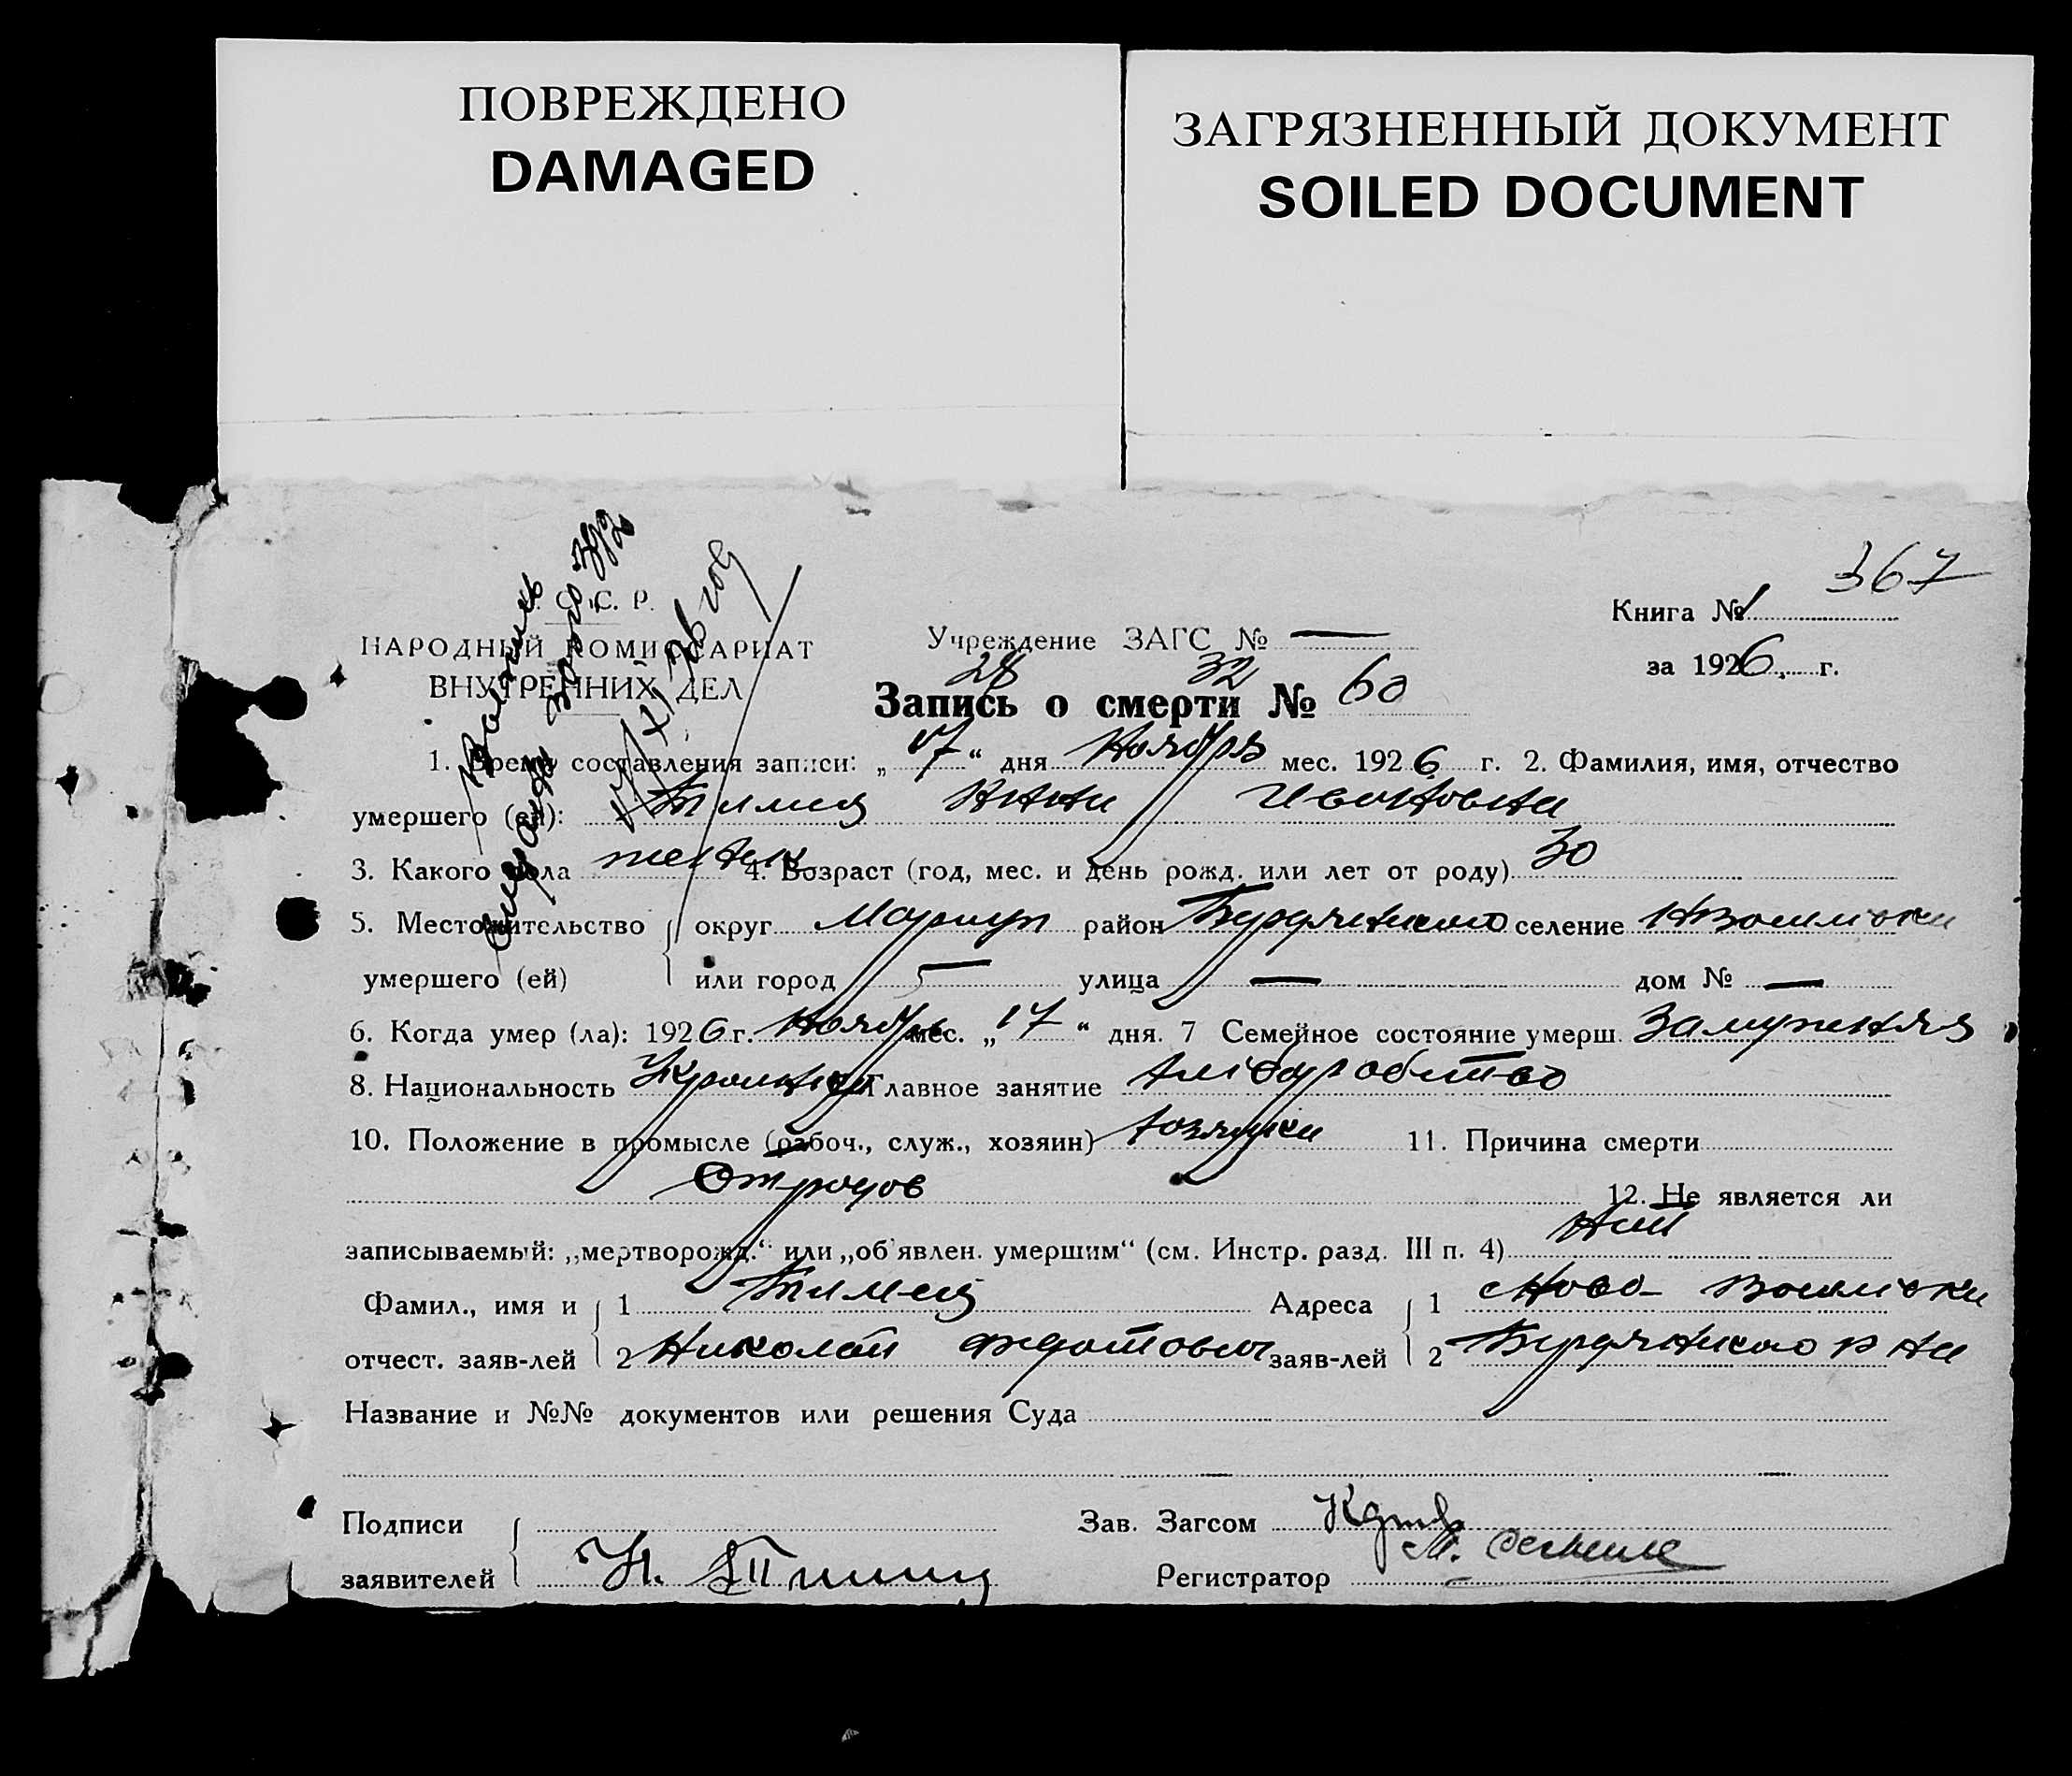 ПОВРЕЖДЕНО
DAMAGED
ЗАГРЯЗНЕННЫЙ ДОКУМЕНТ
SOILED DOCUMENT
367
Книга № 1
за 1926 г.
С. С. Р.
НАРОДНЫЙ КОМИССАРИАТ
ВНУТРЕННИХ ДЕЛ
Учреждение ЗАГС № —
28 32
Запись о смерти № 60
1. Время составления записи: „17“ дня Ноября мес. 1926 г. 2. Фамилия, имя, отчество
умершего (ей): Анни Ивановна
3. Какого пола женск 4. Возраст (год, мес. и день рожд. или лет от роду) 30
5. Местожительство округ Мариуп район Бердянского селение
умершего (ей) или город — улица — дом № —
6. Когда умер (ла): 1926 г. Ноябрь мес. „17“ дня. 7 Семейное состояние умерш. Замужняя
8. Национальность Главное занятие хліборобство
10. Положение в промысле (рабоч., служ., хозяин) хозяйки 11. Причина смерти
От родов 12. Не является ли
записываемый: „мертворожд.“ или „об'явлен. умершим“ (см. Инстр. разд. III п. 4) Нет
Фамил., имя и 1 Адреса 1 Ново-
отчест. заяв-лей 2 Николай Федотович заяв-лей 2 Бердянского р на
Название и №№ документов или решения Суда
Подписи Зав. Загсом
заявителей Н. Регистратор